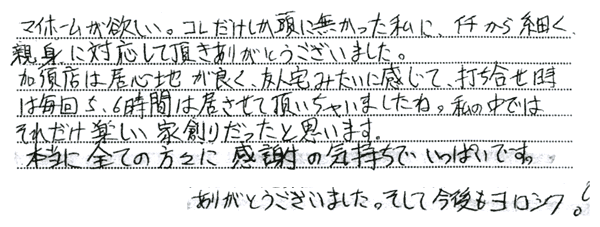 マイホームが欲しい。コレだけしか頭に無かった私に、イチから細く、
親身に対応して頂きありがとうございました。
加須店は居心地が良く、友人宅みたいに感じて、打ち合せ時
は毎回5、6時間は居させて頂いちゃいましたね。私の中では
それだけ楽しい家創りだったと思います。
本当に全ての方々に感謝の気持ちでいっぱいです。
ありがとうございました。そして今後もヨロシク。